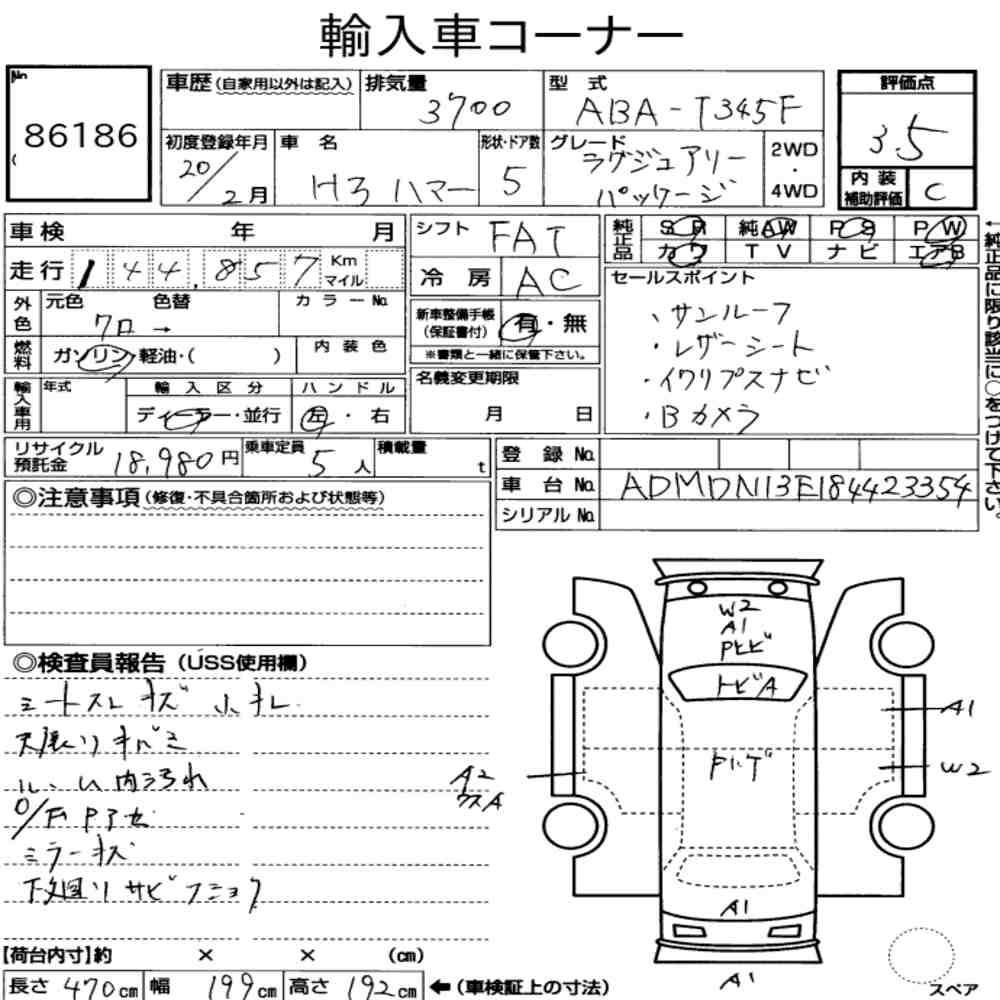 輸入車コーナー
No.
86186
車歴(自家用以外は記入)
排気量
3700
型式
ABA-T345F
評価点
3.5
初度登録年月
20/2月
車名
H3 ハマー
形状・ドア数
5
グレード
ラグジュアリー
パッケージ
2WD
・
4WD
内装
補助評価
C
車検 年 月
シフト
FAT
純正品
SR 純AW PS PW
カワ TV ナビ エアB
走行 144,857 Km マイル
冷房
AC
セールスポイント
、サンルーフ
・レザーシート
・イクリプスナビ
・Bカメラ
外色
元色 色替
クロ →
カラーNo.
新車整備手帳
(保証書付)
有・無
※書類と一緒に保管下さい。
燃料
ガソリン・軽油・( )
内装色
名義変更期限
月 日
輸入車用
年式
輸入区分
ディーラー・並行
ハンドル
左・右
←純正品に限り該当に○をつけて下さい。
リサイクル
預託金
18,980円
乗車定員
5人
積載量
t
登録No.
車台No.
ADMDN13E184423354
シリアルNo.
◎注意事項(修復・不具合箇所および状態等)
◎検査員報告(USS使用欄)
シートスレ キズ 小キレ
天張り キバミ
ルーム内汚れ
ミラーキズ
下廻り サビ フショク
W2
A1
トビA
A1
W2
A2
A1
A1
スペア
【荷台内寸】約 × × (cm)
長さ 470cm 幅 199cm 高さ 192cm ←(車検証上の寸法)